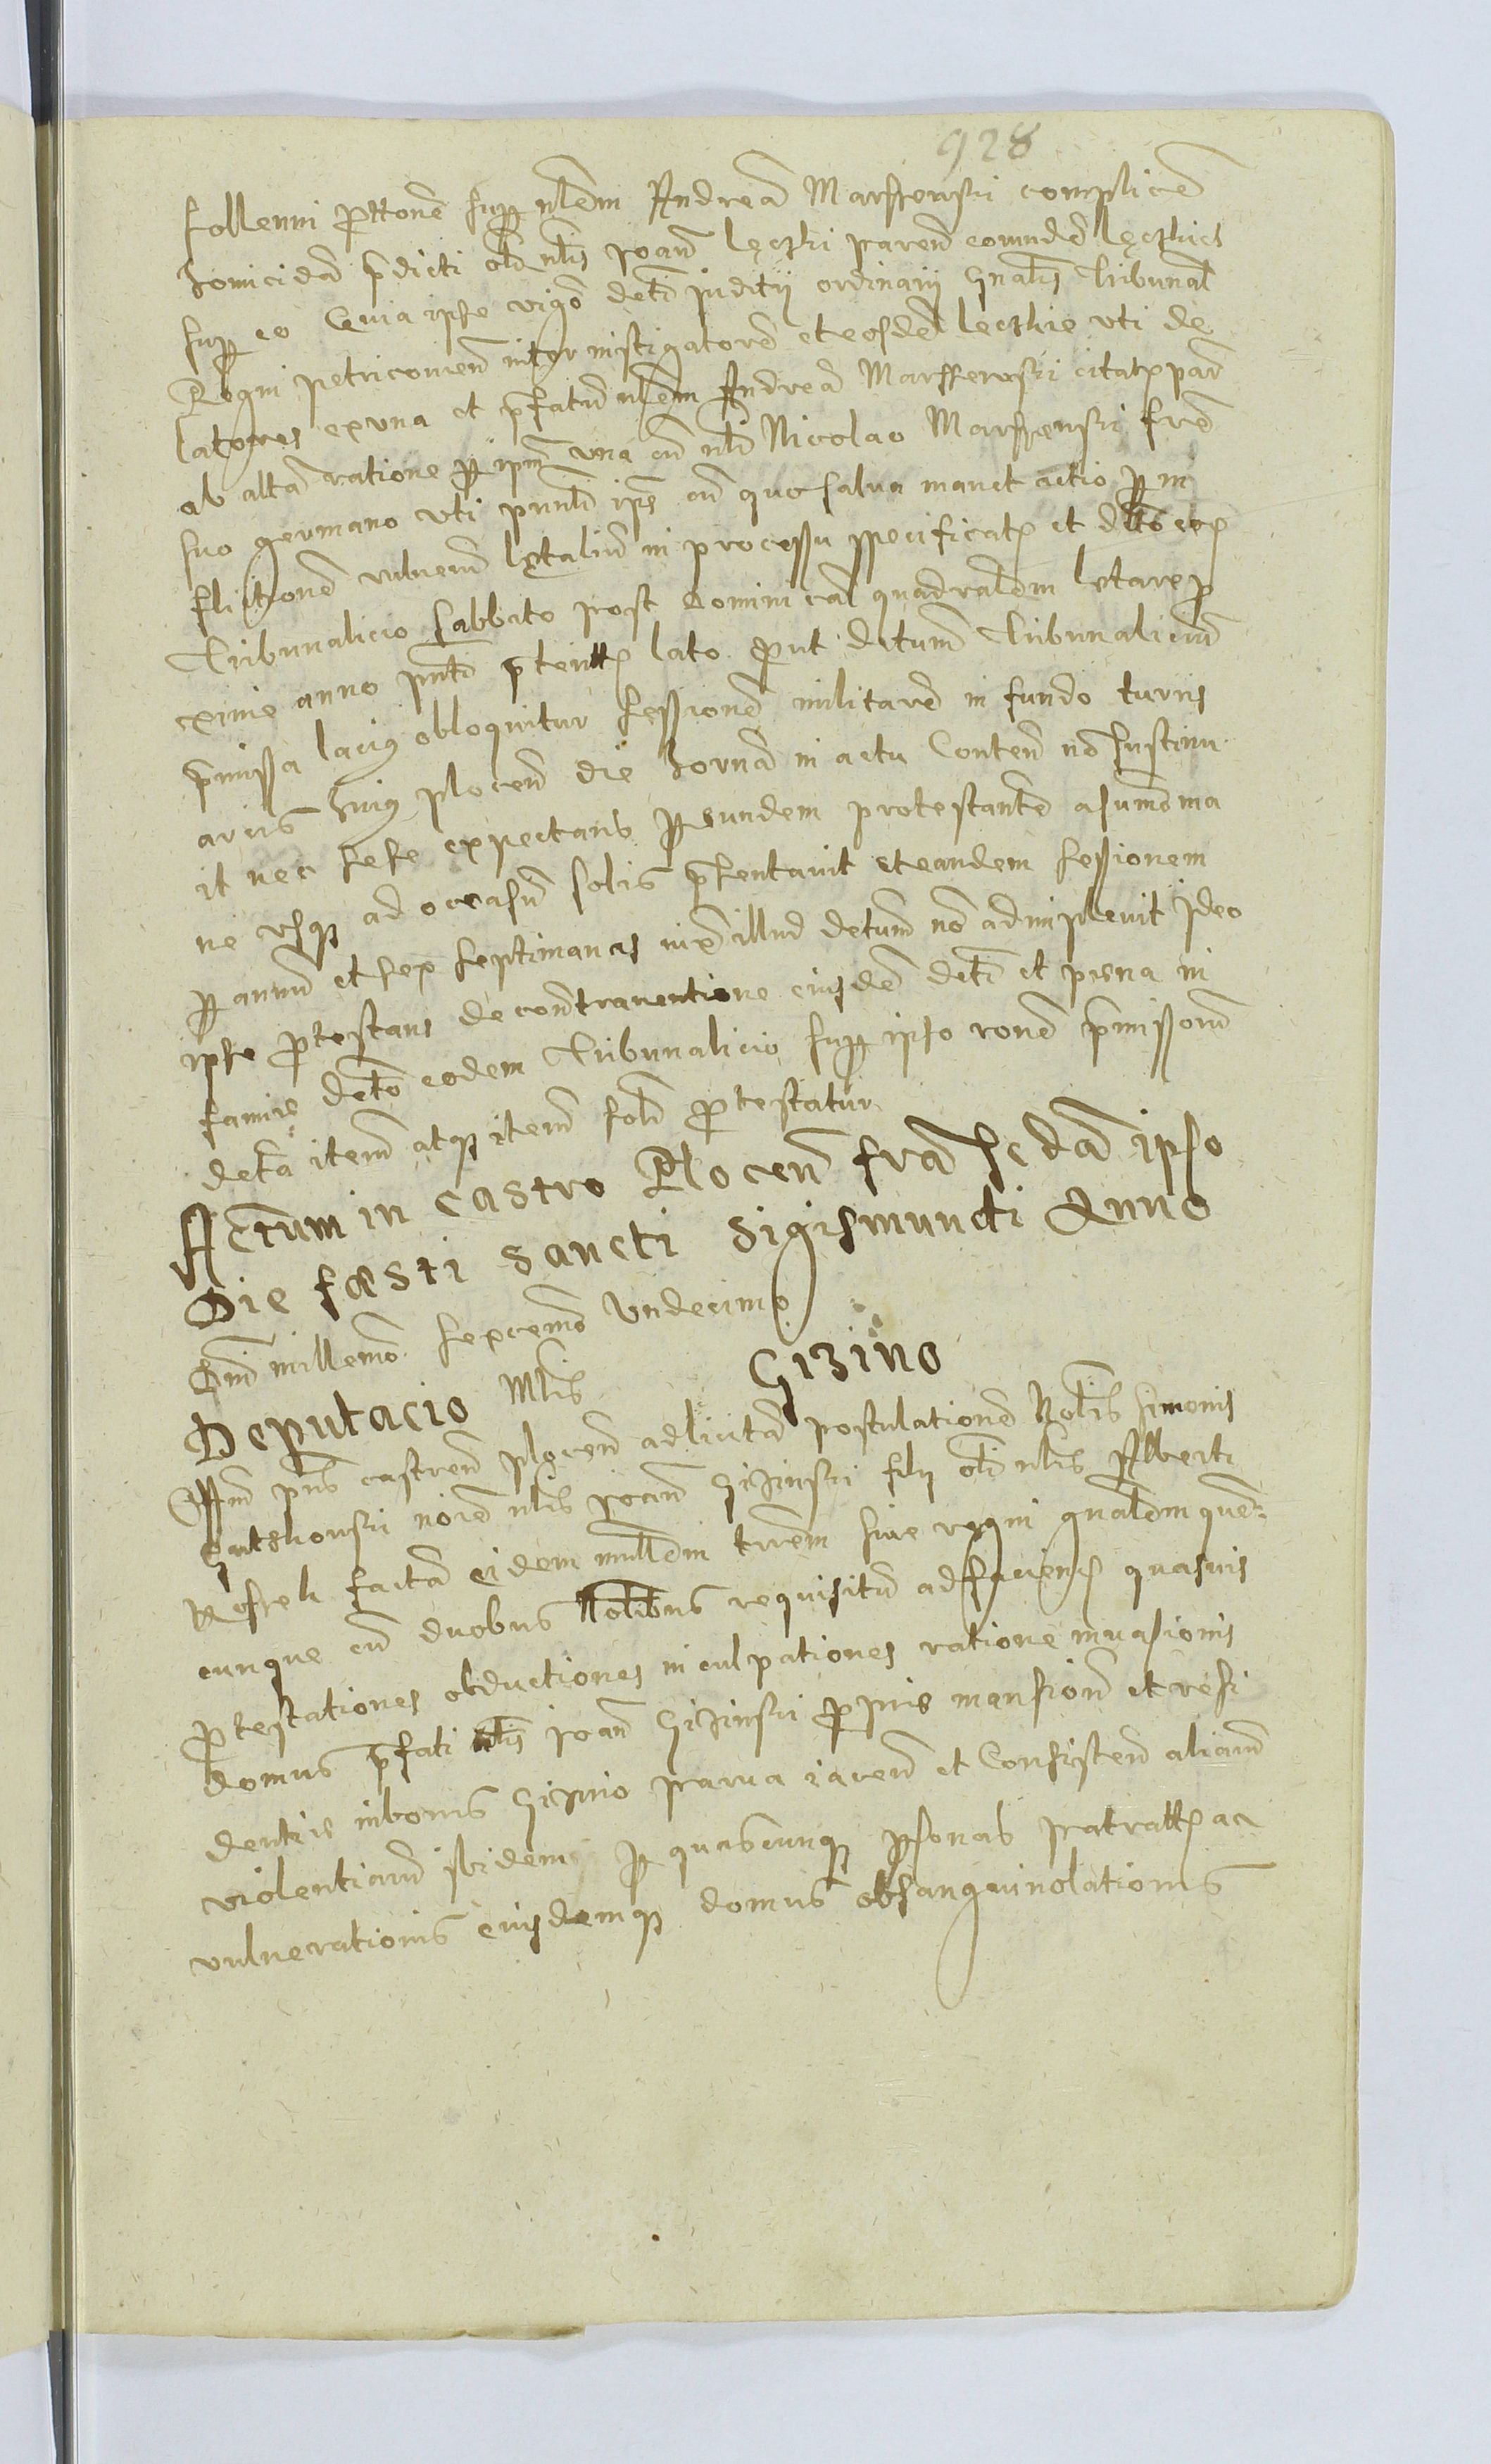 928
sollenni prottone supp nlem Andrea Marszewski complice
homicida pdicti olÞ nlis Joan Lęczki paren eorunde Lęczkies
supp eo Quia ipse vigo deti juditij ordinarij gnalis Tribunal
Regni petricouien inter instigatore et eosde Lęczkie uti de
latores ex una et pfatu nlem Andrea Marszewski citat par
ab alta ratione p ipm una cu nli Nicolao Marszewski fre
suo germano uti pnnli ips cu quo salua manet actio p in
flictione vulneru lętaliu in processu specificat et dto eo
Tribunalicio sabbato post Dominical quadralem letare p
cxime anno pnti pterit lato prout detum Tribunaliciu
pmissa lacius obloquitur sessione militare in fundo turris
arcis huius plocen die horna in actu Conten no sustinu
it nec sese expectans p eundem protestante a sumo ma
ne usq ad occasu solis psentauit et eandem sessionem
p annu et sex septimanas iux illud detum no adimpleuit ideo
ipse ptestans de contrauentione eiusde deti et poena in
famię deto eodem Tribunalicio supp ipso rone pmissoru
deta item atq item soln ptestatur
Actum in castro Plocen fria scda ipso
Die fæsti sancti Sigismundi Anno
Dni millemo sexcemo Undecimo
Deputacio Mlis Gizino
Offm pns castren plocen ad licita postulatione Nolis Simonis
noie nlis Joan Gizinski filij oli nlis Alberti
facta eidem mllem trrem siue regni gnalem quem
cunque cu duobus Nolibus requisitu ad facien quasuis
ptestationes obductiones inculpationes ratione inuasionis
domus pfati nlis Joan Gizinski pprijs mansion et resi
dentię in bonis Gizino parua iacen et Consisten aliaru
violentiaru ibidem p quascunq psonas patrat ac
vulnerationis eiusdemq domus obsanguinolationis